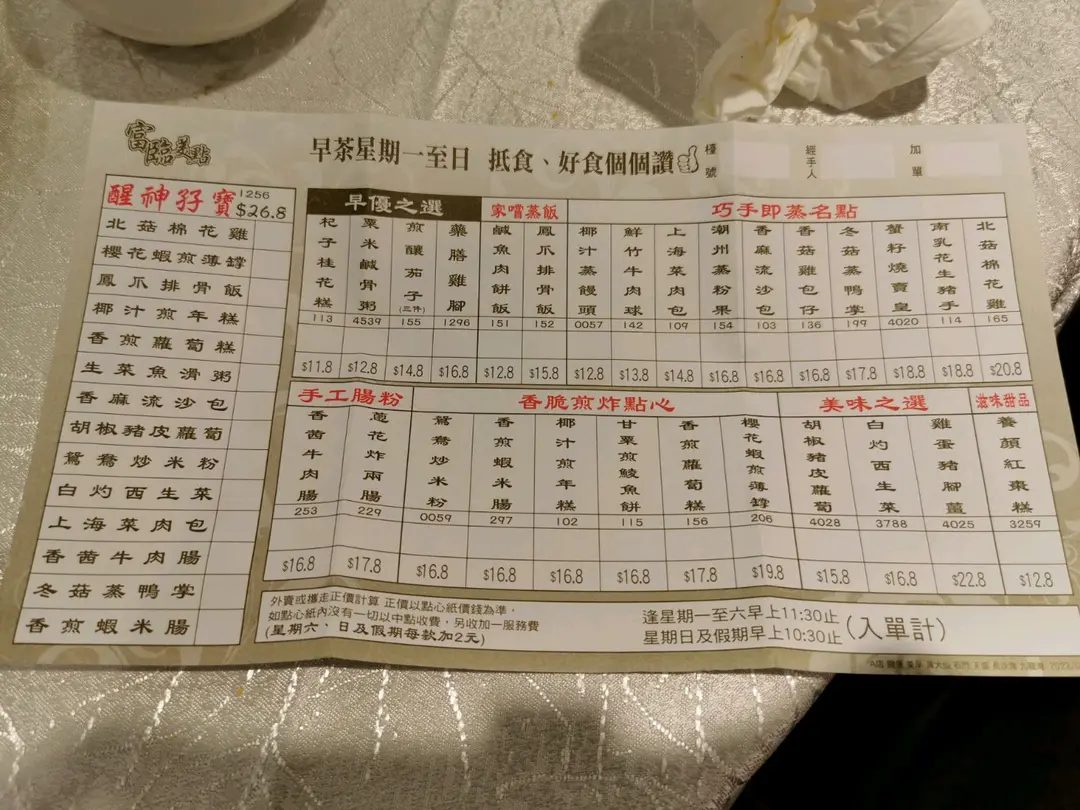 富臨美點
早茶星期一至日 抵食、好食個個讚
檯號
經手人
加單
醒神孖寶 1256 $26.8
北菇棉花雞
櫻花蝦煎薄罉
鳳爪排骨飯
椰汁煎年糕
香煎蘿蔔糕
生菜魚滑粥
香麻流沙包
胡椒豬皮蘿蔔
鴛鴦炒米粉
白灼西生菜
上海菜肉包
香茜牛肉腸
冬菇蒸鴨掌
香煎蝦米腸
早優之選
杞子桂花糕 113 $11.8
粟米鹹骨粥 4539 $12.8
煎釀茄子(三件) 155 $14.8
藥膳雞腳 1296 $16.8
家嚐蒸飯
鹹魚肉餅飯 151 $12.8
鳳爪排骨飯 152 $15.8
巧手即蒸名點
椰汁蒸饅頭 0057 $12.8
鮮竹牛肉球 142 $13.8
上海菜肉包 109 $14.8
潮州蒸粉果 154 $16.8
香麻流沙包 103 $16.8
香菇雞包仔 136 $16.8
冬菇蒸鴨掌 199 $17.8
蟹籽燒賣皇 4020 $18.8
南乳花生豬手 114 $18.8
北菇棉花雞 165 $20.8
手工腸粉
香茜牛肉腸 253 $16.8
蔥花炸兩腸 229 $17.8
香脆煎炸點心
鴛鴦炒米粉 0059 $16.8
香煎蝦米腸 297 $16.8
椰汁煎年糕 102 $16.8
甘粟煎鯪魚餅 115 $16.8
香煎蘿蔔糕 156 $17.8
櫻花蝦煎薄罉 206 $19.8
美味之選
胡椒豬皮蘿蔔 4028 $15.8
白灼西生菜 3788 $16.8
雞蛋豬腳薑 4025 $22.8
滋味甜品
養顏紅棗糕 3259 $12.8
外賣或攜走正價計算 正價以點心紙價錢為準，
如點心紙內沒有一切以中點收費，另收加一服務費
(星期六、日及假期每款加2元)
逢星期一至六早上11:30止
星期日及假期早上10:30止
(入單計)